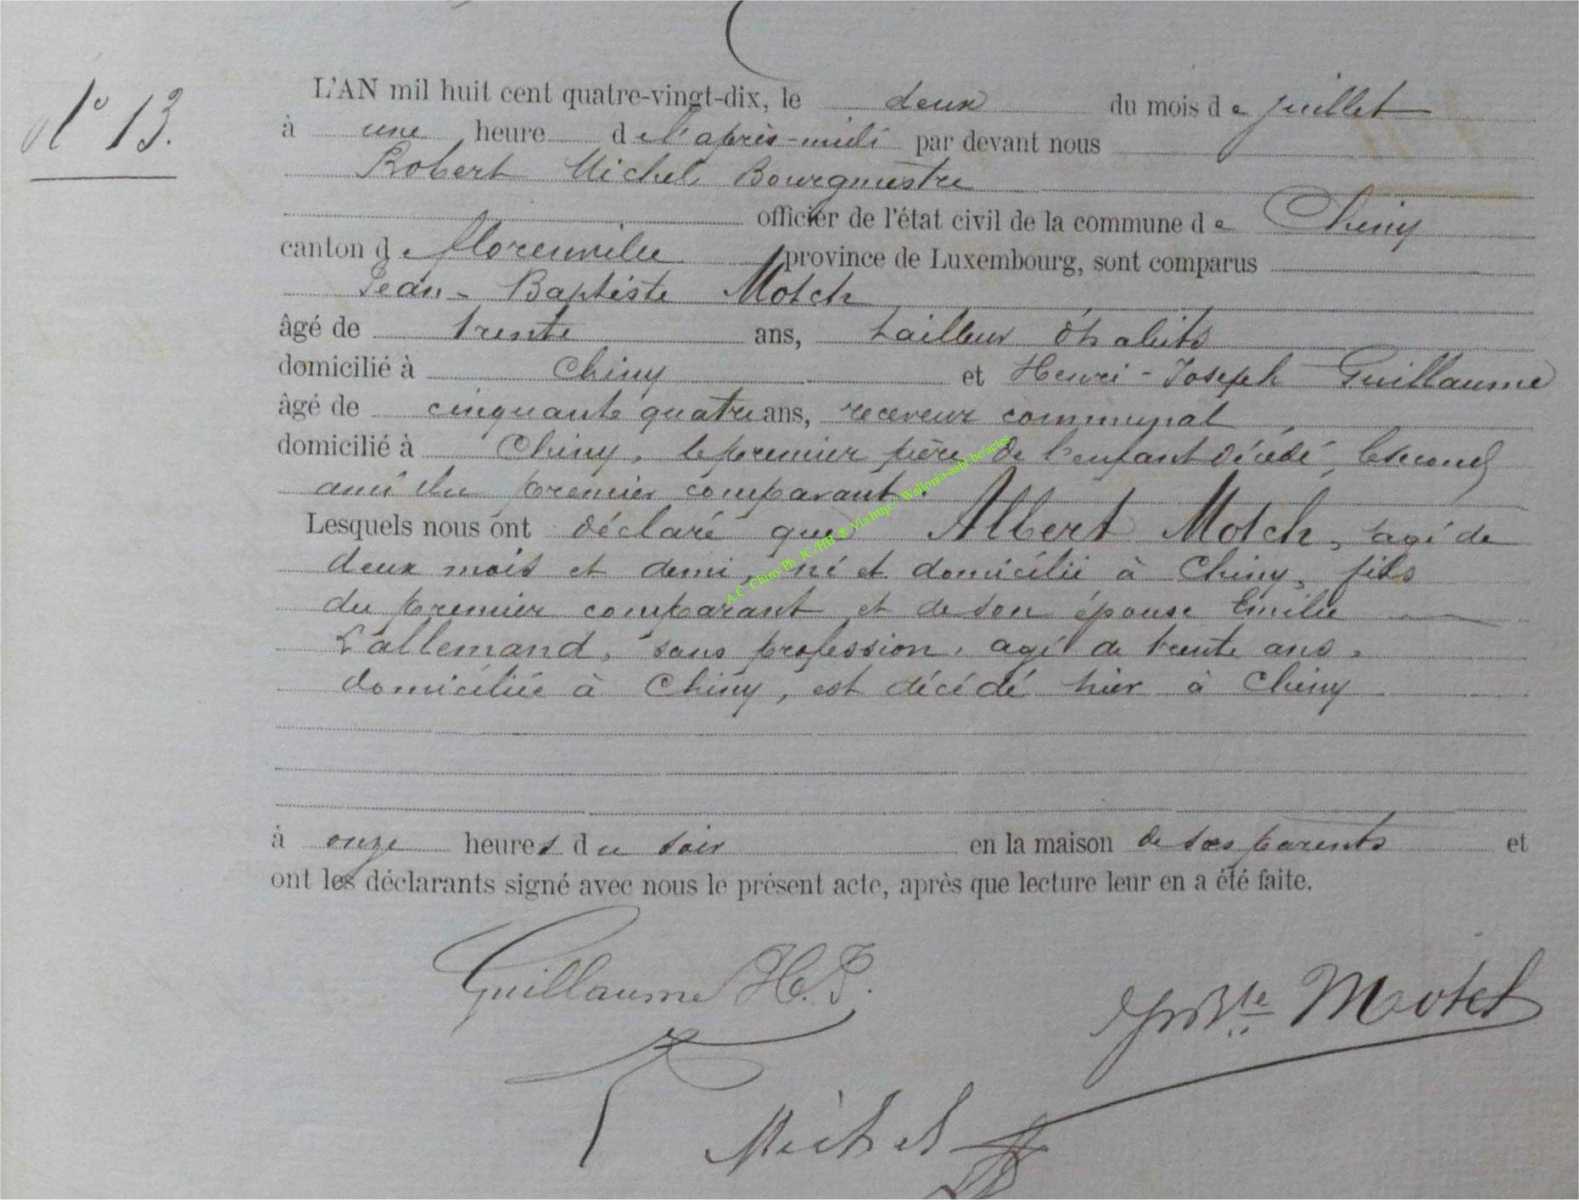 N° 13.
L'AN mil huit cent quatre-vingt-dix, le deux du mois de juillet
à une heure de l'après-midi par devant nous
Robert Michel, Bourgmestre
officier de l'état civil de la commune de Chiny
canton de Florenville province de Luxembourg, sont comparus
Jean-Baptiste Motch
âgé de trente ans, tailleur d'habits
domicilié à Chiny et Henri-Joseph Guillaume
âgé de cinquante quatre ans, receveur communal,
domicilié à Chiny, le premier père de l'enfant décédé, le second
ami du premier comparant.
Lesquels nous ont déclaré que Albert Motch, agé de
deux mois et demi, né et domicilié à Chiny, fils
du premier comparant et de son épouse Emilie
Lallemand, sans profession, agé de trente ans,
domiciliée à Chiny, est décédé hier à Chiny
à onze heures du soir en la maison de ses parents et
ont les déclarants signé avec nous le présent acte, après que lecture leur en a été faite.
Guillaume H. J.
Jn Bte Motch
Michel